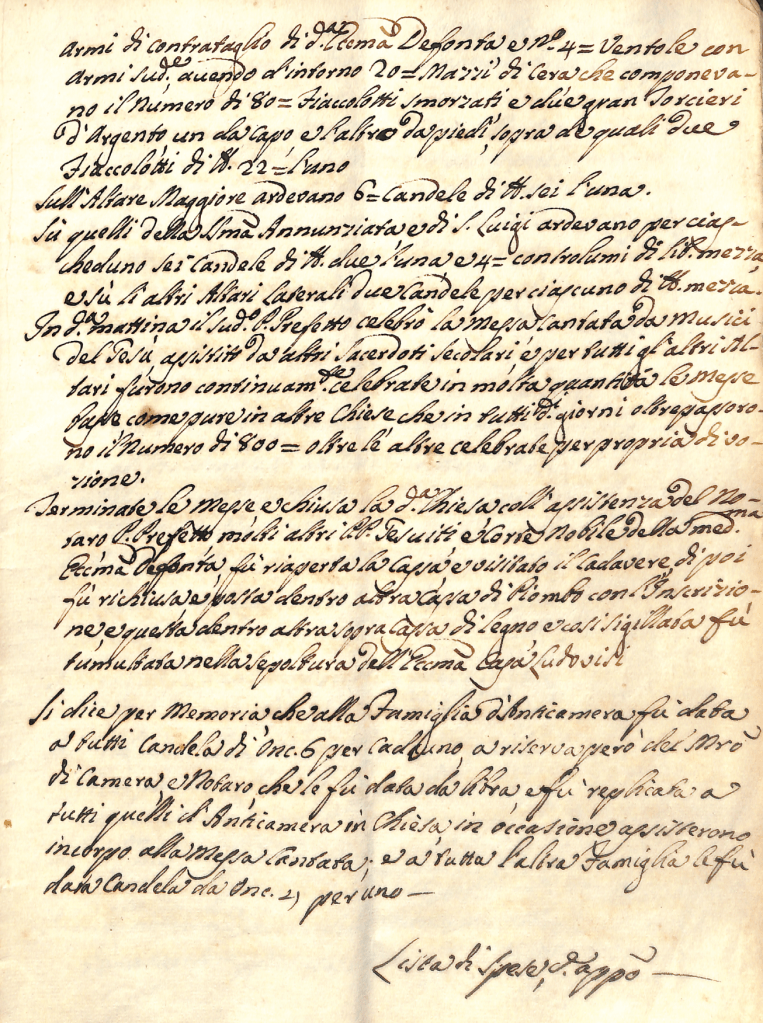 Armi di contrataglio di d.ª Eccma Defonta e Nº. 4 = Ventole con
Armi Sud.e avendo d'intorno 20 = Mazzi di Cera che componeva-
no il Numero di 80 = Fiaccolotti smorzati e due gran Torcieri
d'Argento un da Capo, e l'altro da piedi, sopra de quali due
Fiaccolotti di lb. 22 = l'uno
Sull'Altare Maggiore ardevano 6 = Candele di lb. sei l'una.
Sù quelli della SSma Annunziata e di S. Luigi ardevano per cias-
cheduno sei Candele di lb. due l'una e 4 = controlumi di lib. mezza,
e sù li altri Altari Laterali due Candele per ciascuno di lb. mezza.
In d.ª mattina il Sud.º P. Prefetto celebrò la Messa Cantata da Musici
del Gesù, assistito da altri Sacerdoti Secolari e per tutti gl'altri Al-
tari furono continuam.te celebrate in molta quantità le Messe
basse come pure in altre Chiese che in tutti d.i giorni oltrepassoro-
no il Numero di 800 = oltre le altre celebrate per propria divo-
zione.
Terminate le Messe e chiusa la d.ª Chiesa coll'assistenza del No-
taro P. Prefetto molti altri PP. Gesuiti e Corte Nobile della med.ma
Eccma Defonta fù riaperta la Cassa e visitato il Cadavere, di poi
fù richiusa e posta dentro altra Cassa di Piombo con l'Inscrizio-
ne e questa dentro altra sopra Cassa di legno e così sigillata fù
tumultata nella sepoltura dell'Eccma Casa Ludovisi
Si dice per Memoria che alla Famiglia d'Anticamera fù data
a tutti Candela di Onc. 6 per Cadauno, a riserva però del Mro
di Camera, e Notaro che le fù data da libra e fù replicata a
tutti quelli d'Anticamera in Chiesa in occasione assisterono
in corpo alla Messa Cantata; e a tutta l'altra Famiglia le fù
data Candela da Onc. 2, per uno —
Lista di Spese, d.ª appo —